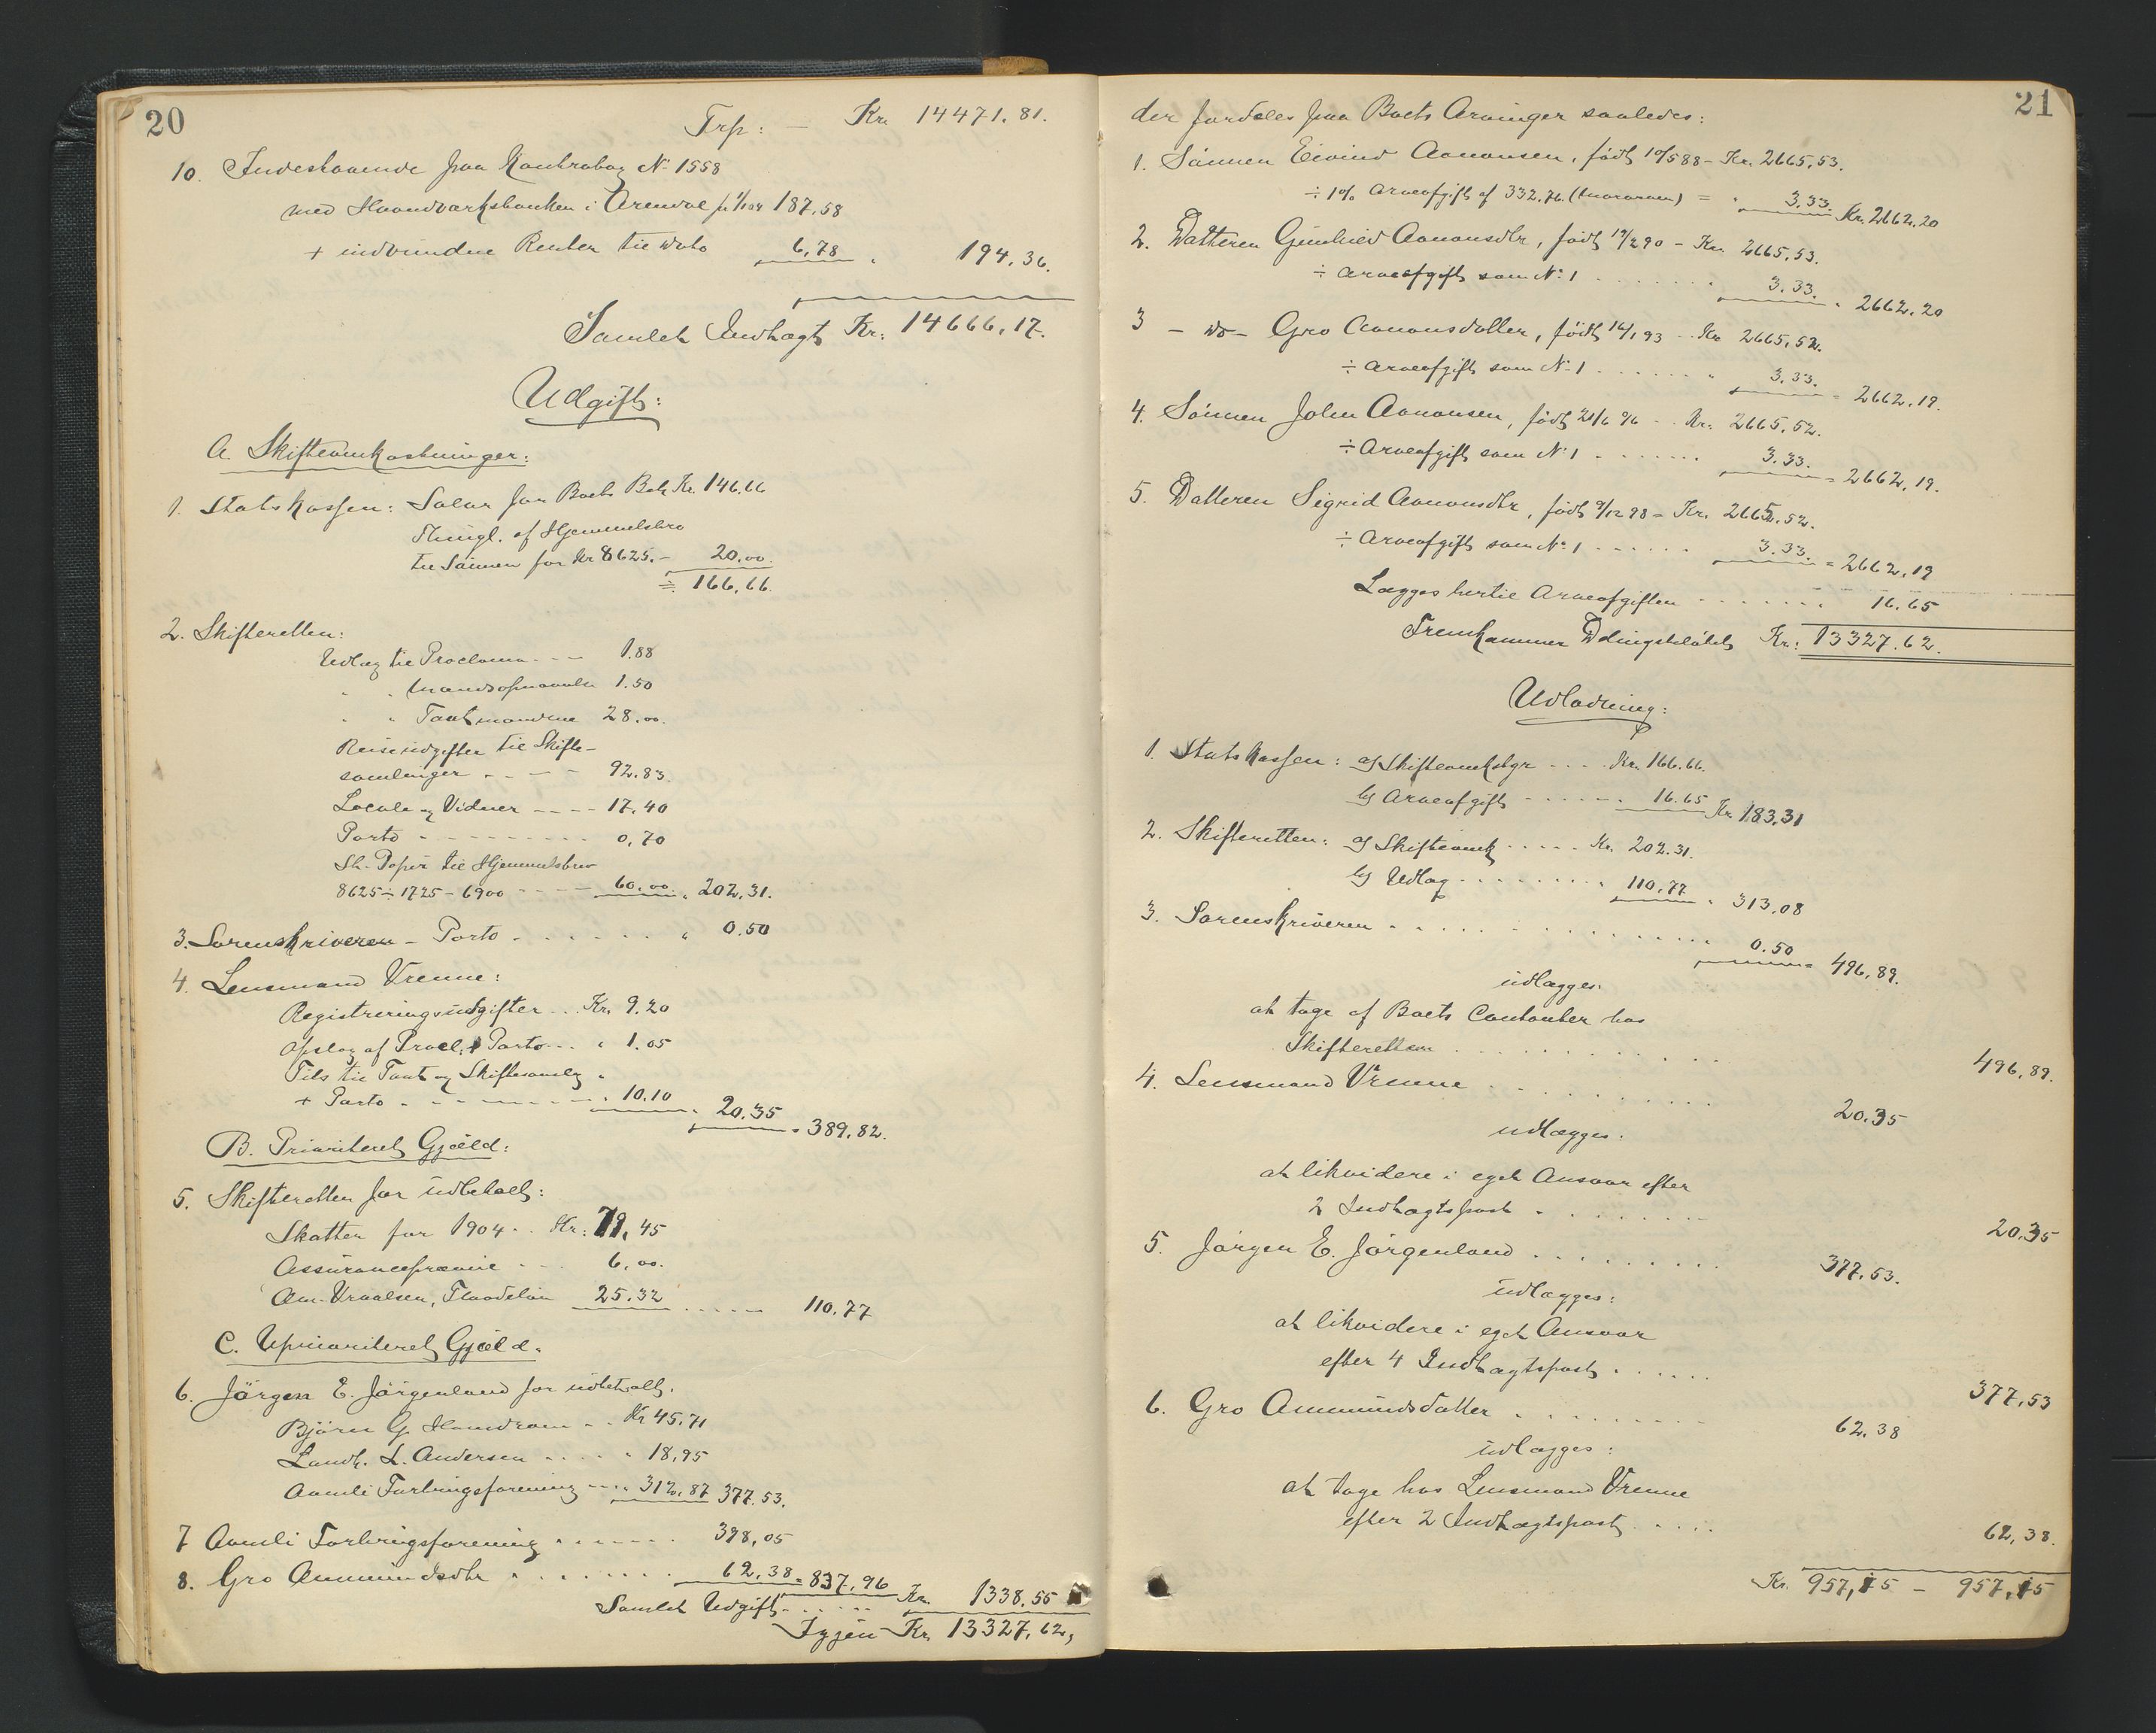 20
Trp: — Kr. 14471.81.
10. Indestaaende paa Kontrabog No 1558
med Haandværksbanken i Arendal pr 1/1 04 187,58
+ indvundne Renter til dato 6,78 " 194,36.
Samlet Indtægt Kr: 14666,17.
Udgift:
A. Skifteomkostninger:
1. Statskassen: Salær for Boets Beh Kr. 146,66
Thingl. af Hjemmelsbre
til Sönnen for Kr 8625.— 20.00.
= 166,66.
2. Skifteretten:
Udlæg til Proclama - - - 1.88
" " 1.50
" " Taxtmændene 28.00.
Reiseudgifter til Skifte-
samlinger - - - - 92.83.
Locale og Vidner - - - 17.40
Porto - - - - - - - - 0,70
St. Papir til Hjemmelsbrev
8625 ÷ 1725 - 6900 - - - - 60.00. " 202,31.
3. Sorenskriveren - Porto . . . . . . " 0.50
4. Lensmand Vrenne:
Registreringsudgifter . . . Kr. 9.20
Opslag af Procl. + Porto - - . " 1.05
Tils til Taxt og Skiftesamlg "
+ Porto - - - - - - - . 10.10 " 20.35 = 389,82.
B. Prioriteret Gjæld:
5. Skifteretten for udbetalt:
Skatter for 1904 . . Kr: 79,45
Assurancepræmie - - . 6,00.
Am. Vraalsen, 25.32 . . . . . 110.77
C. Uprioriteret Gjæld.
6. Jörgen E. Jörgenland for udbetalt.
Björn G. Hamdram . . Kr 45,71
Landh. L. Andersen . . . . " 18,95
Aamli Forbrugsforening - - . " 312.87 377.53.
7 Aamli Forbrugsforening . . . . . . . 398,05
8. Gro Ammundsdtr . . . . . . . 62.38 = 837,96 Kr. 1338,55
Samlet Udgift . . . . . .
Igjen Kr. 13327,62,
21
der fordeles paa Boets Arvinger saaledes:
1. Sönnen Eivind Aanonsen, född 10/5 88 - Kr. 2665,53.
÷ 1% Arveafgift af 332.76. (morarven) = " 3.33. Kr. 2662,20
2. Datteren Gunhild Aanonsdtr, född 19/2 90 - Kr. 2665,53.
÷ Arveafgift som No 1 . . . . . . . " 3.33. " 2662,20
3 - do - Gro Aanonsdatter, född 14/1 93 - Kr 2665,52.
÷ Arveafgift som No 1 . . . . . . " 3.33. = 2662.19.
4. Sönnen John Aanonsen, född 21/6 96 - . Kr. 2665,52.
÷ Arveafgift som No 1 . . . . . . . 3.33. = 2662,19.
5. Datteren Sigrid Aanonsdtr, född 9/12 98 - Kr. 2665,52.
÷ Arveafgift som No 1 . . . . . . 3.33. = 2662,19
Lægges hertil Arveafgiften . . . . . . . 16.65
Fremkommer Delingsbelöbet Kr: 13327.62.
Udlodning:
1. Statskassen: a) Skifteomkstgr - - - . Kr. 166.66.
b) Arveafgift - - - - - . 16.65 Kr. 183,31
2. Skifteretten: a) Skifteomk . . . . . Kr. 202.31.
b) Udlæg . . . . . . . . . 110,77 " 313,08
3. Sorenskriveren . . . . . . . . . . . . . 0.50 = 496,89.
udlægges:
at tage af Boets Contanter hos
Skifteretten . . . . . . . . . . . 496,89.
4. Lensmand Vrenne . . . . . . . . . . 20.35
udlægges:
at likvidere i eget Ansvar efter
2 Indtægtspost . . . . . . . . 20.35
5. Jörgen E. Jörgenland . . . . . . . . . 377,53.
udlægges:
at likvidere i eget Ansvar
efter 4 Indtægtspost . . . . . . 377,53
6. Gro Ammundsdatter . . . . . . . . . 62,38
udlægges:
at tage hos Lensmand Vrenne
efter 2 Indtægtspost . . . . . 62,38.
Kr. 957,15 - 957,15